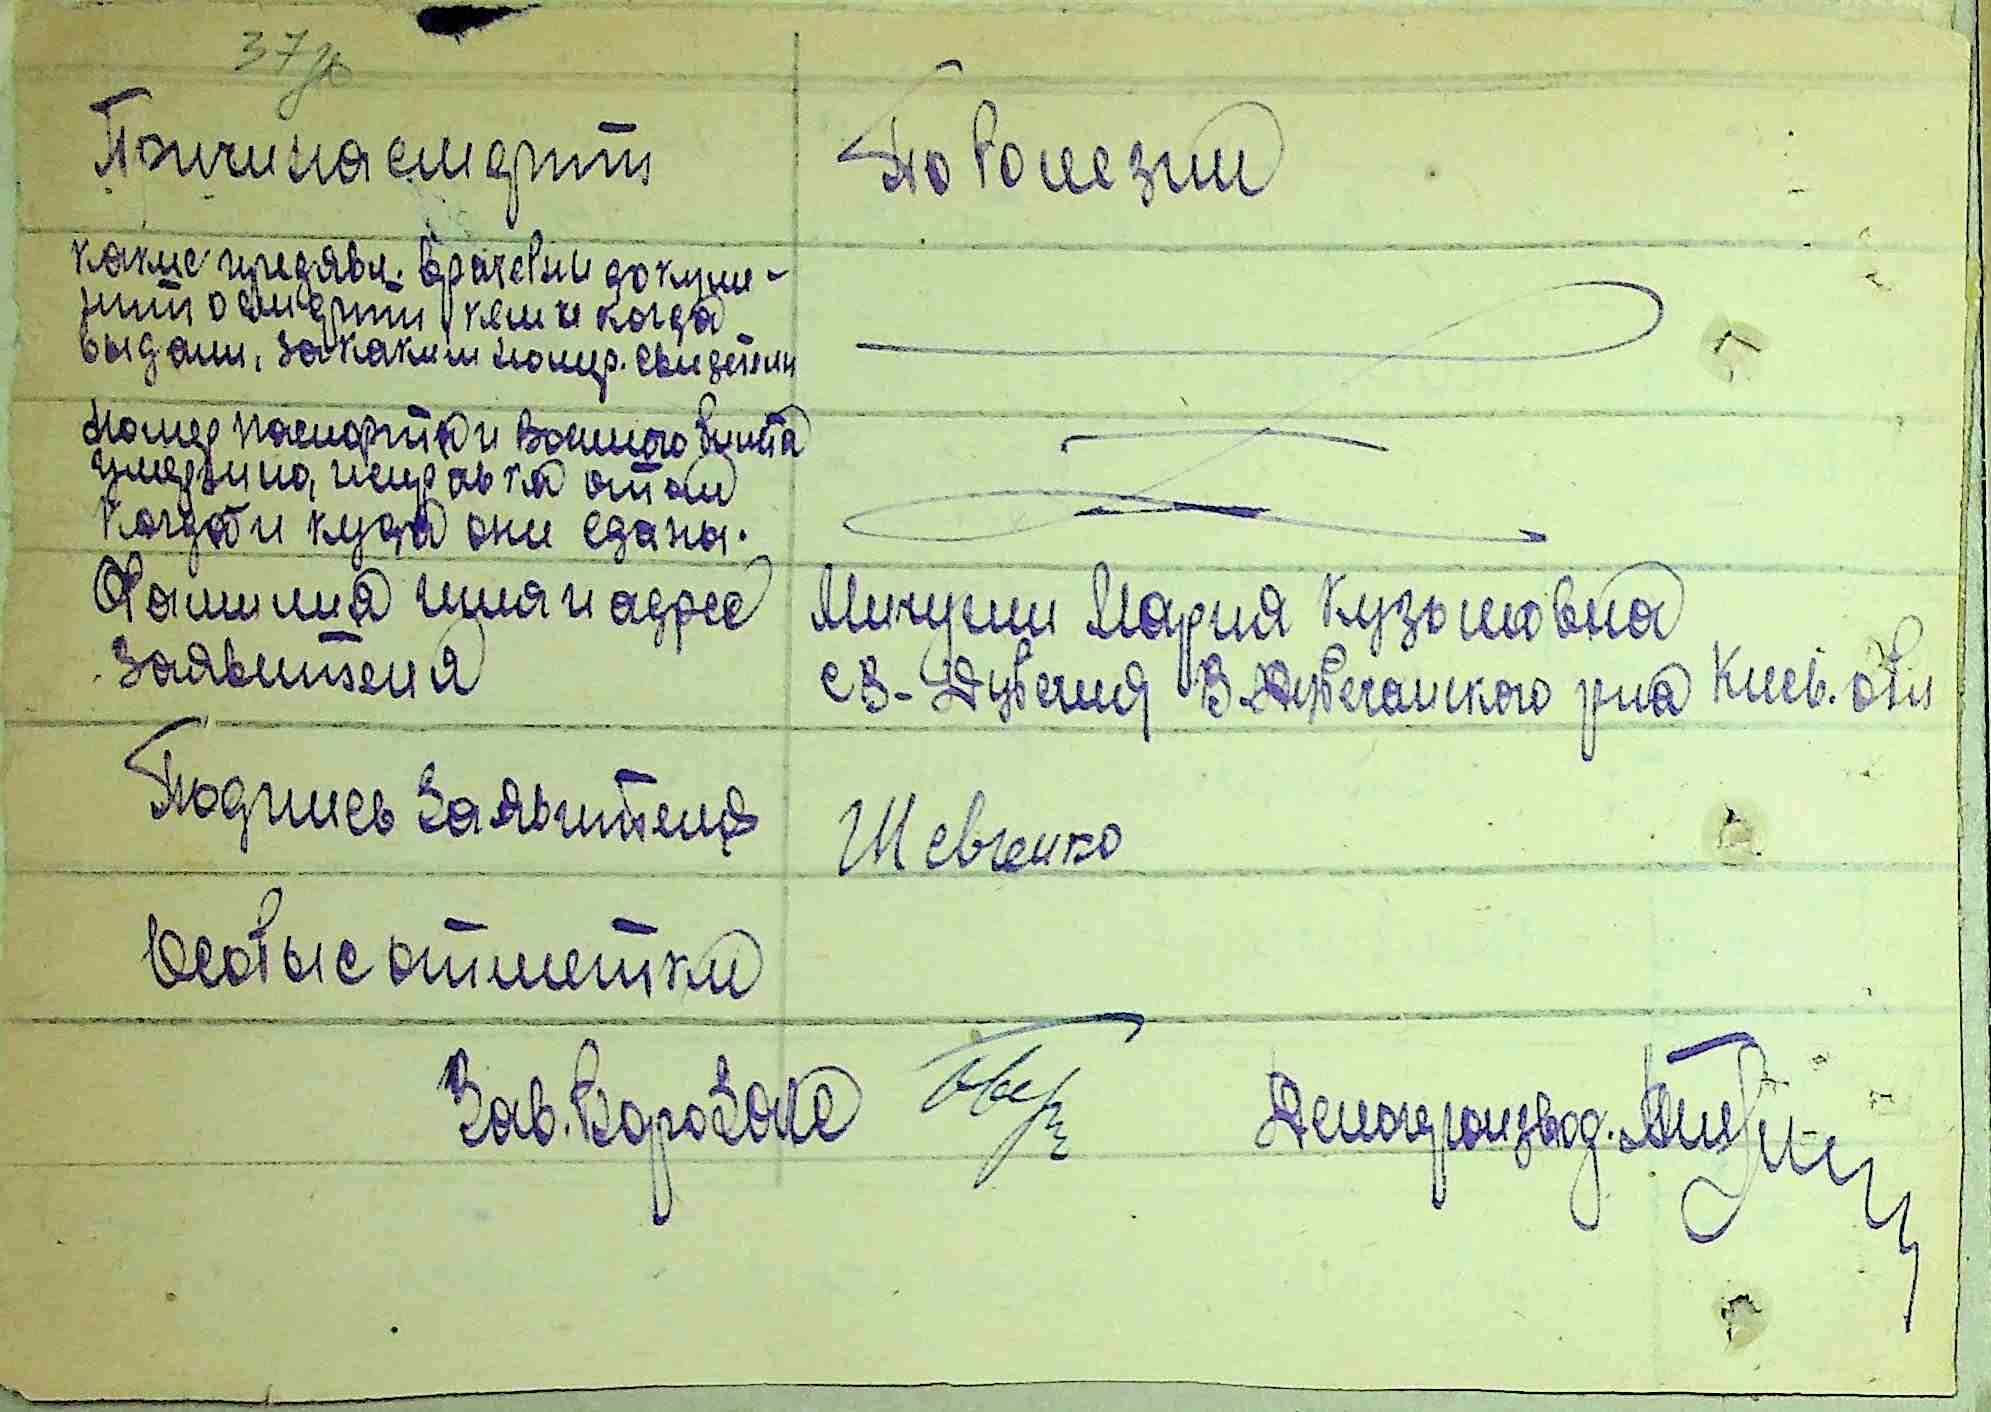 37
Причина смерти
По болезни
какие предявл. врачебни докуме-
нити о смерти кем и когда
выдани, за каким номер. свидетели
Номер паспорта и военного билита
умершого, исправка о том
когда и куда они сданы.
Фамилия имя и адрес
заявителя
Мичуши Мария Кузьмовна
с В-Дубечня В-Дубечанского рна Киев. обл
Подпись Заявителя
Шевченко
Особые отметки
Зав. Бюро Загс
Делопроизвод.